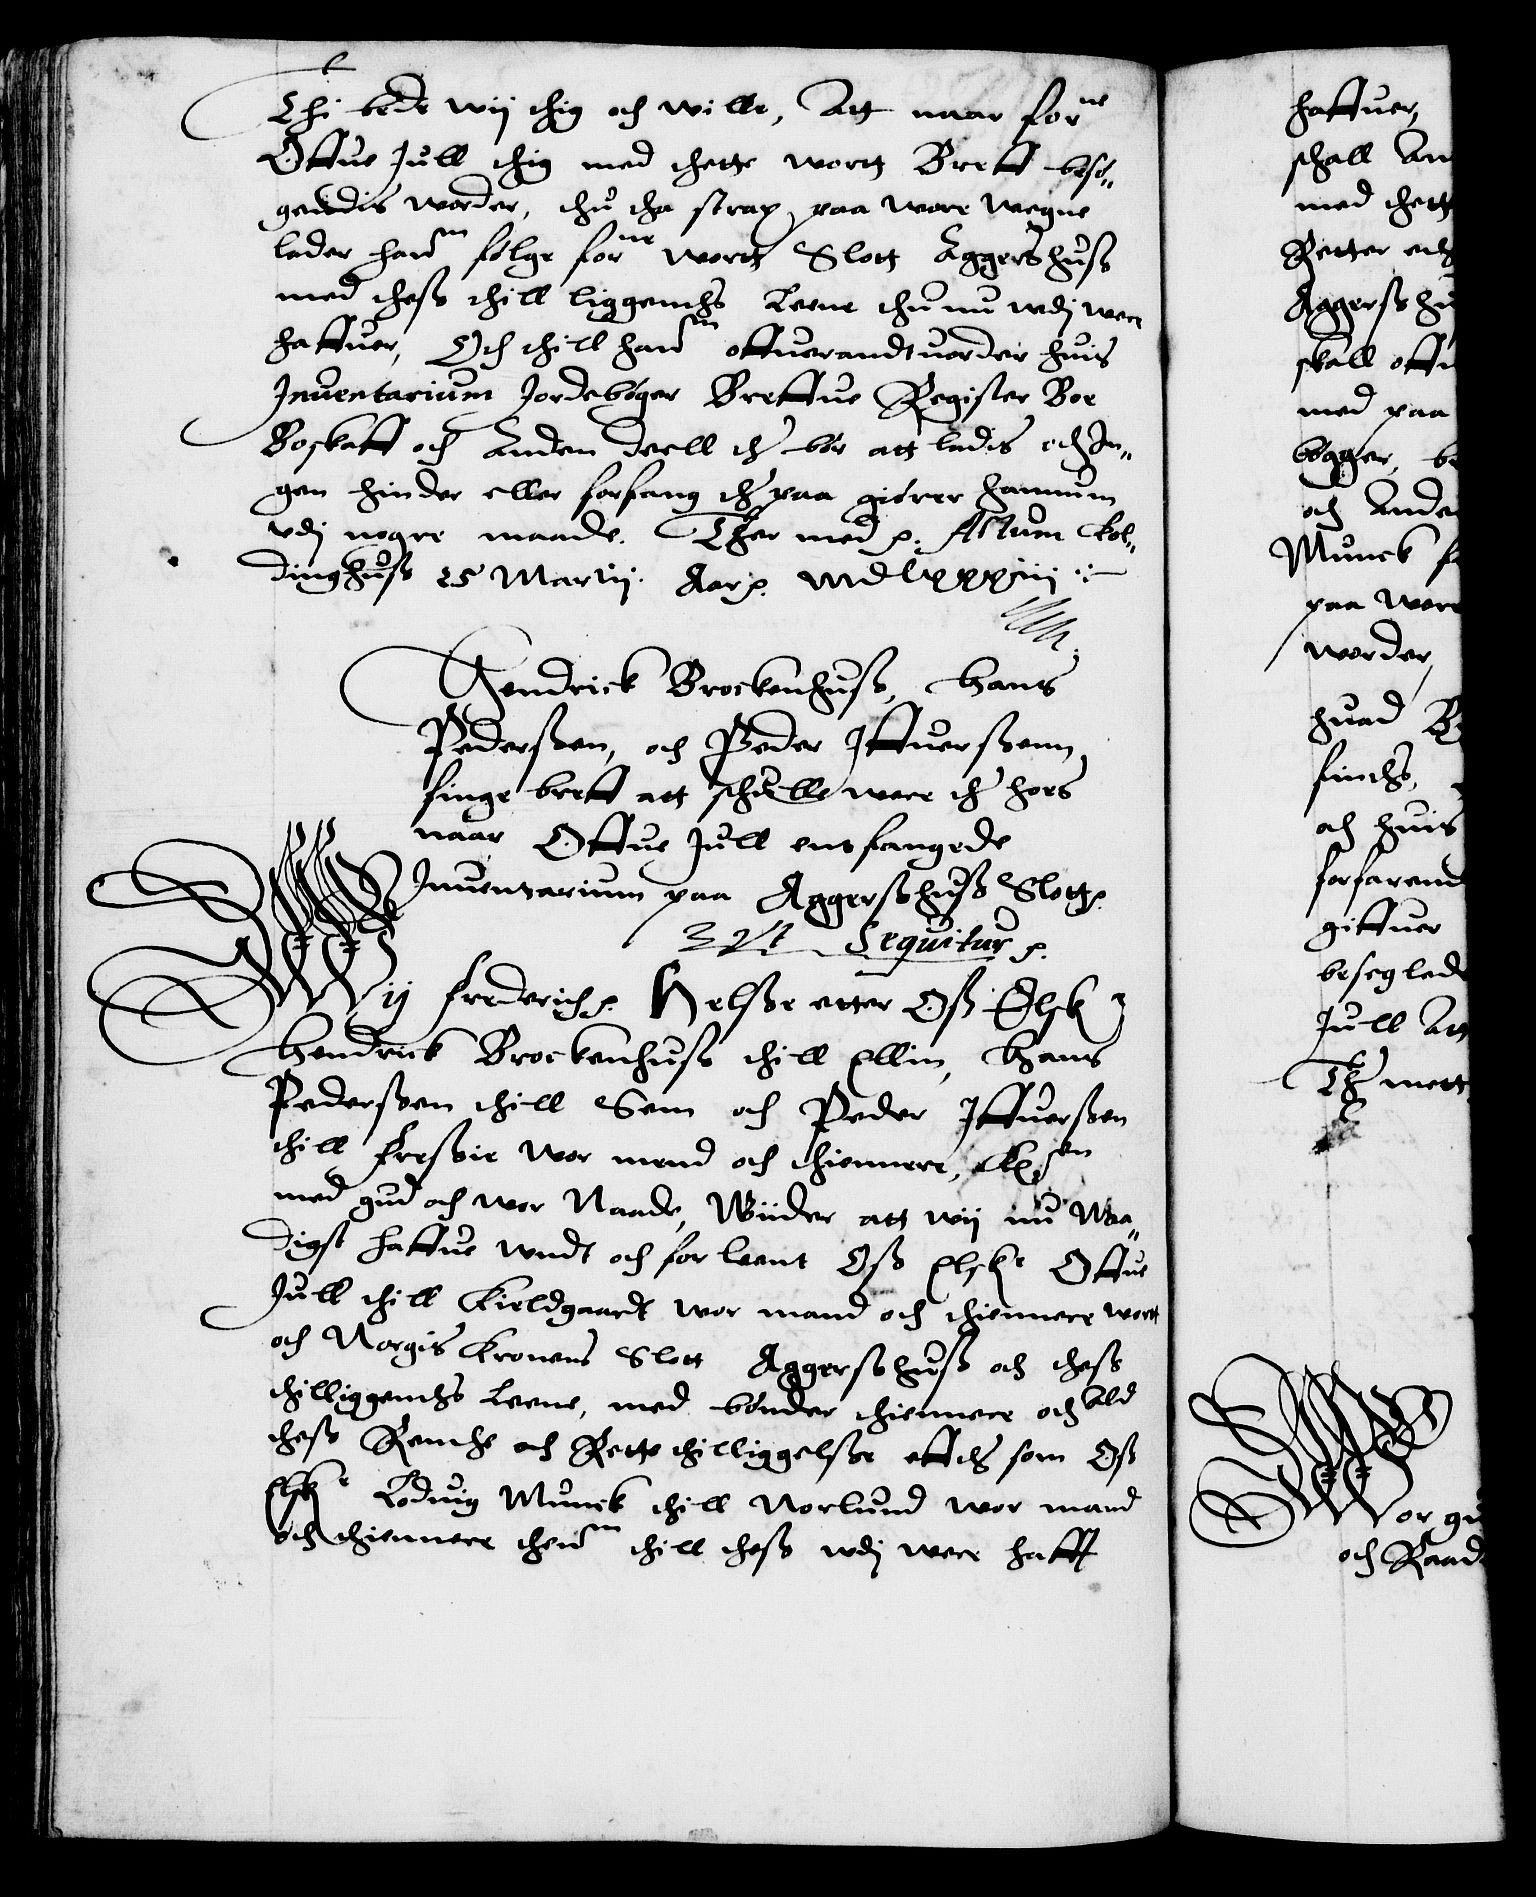 Thi bede wij thig och wille, Att naar forne
Ottue Jull thig med thette wortt Breff besø„
gendis worder, thu tha strax paa wore wegne
lader hannm følge forne wortt Slott Aggershuss
med thess thill liggendis Leene thu nu udj were
haffuer, Och thill hannm offuerandtuorder huis
Inuentarium Jordebøger Breffue Register Boe
Boskaff och Anden deell ther bør att ladis och In„
gen hinder eller forfang ther paa giører hannum
udj nogre maade. Ther med p. Actum Kol„
dinghuss 25 Martij. Aar p. MdLxxxiij

Hendrick Brockenhuss, Hans
Pederssen, och Peder Iffuerssenn
finge breff att schulle were ther hoes
naar Ottue Jull entfangede
Inuentarium paa Aggersshuss Slott p.
Vt Sequitur p.
Wij Frederich p. Helsse etter Oss Elsk
Hendrick Brockenhuss thill Ellin, Hans
Pederssen thill Sem och Peder Iffuerssen
thill Fressie wor mend och thiennere,
med gud och wor Naade, Wiider att wij nu Naa„
digst haffue undt och forleent Oss Elske Ottue
Jull thill Kieldgaardt wor mand och thiennere wortt
och Norgis Kronens Slott Aggersshuss och thess
thilliggendis Leene, med bønder thiennere och ald
thess Rendte och Rette thilliggelsse effter som Oss
Elske Loduig Munck thill Norlund wor mand
och thiennere thennm thill thess udj were hafft

haffuer,
schall An
med thett
Retter och
Aggersshu
skall offu
med paa
bøgger, b
och Ande
Munck f
paa wore
worder,
huad B
findes,
och huis
forfarend
giffuer
besegled
Jull Att
Ther mett
Wor gu
och Raad